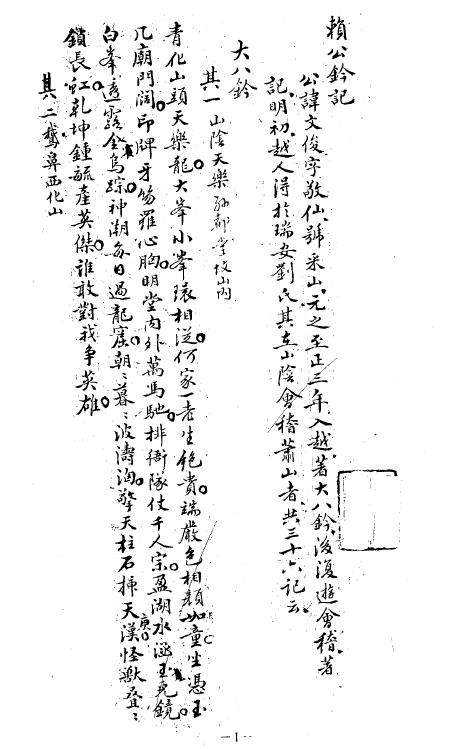 賴公鈐記
公諱文俊字敬仙號釆山元之至正三年入越著大八鈐後復遊會稽著
記明初越人得於瑞安劉氏其在山陰會稽蕭山者共三十六記云
大八鈐
其一山陰天樂 都堂坟山內
青化山頭天樂龍大峯小峯環相從何家一老生絕貴端嚴色相顏如童坐憑玉
几廟門闊印牌牙笏羅心胸明堂內外萬馬馳排衙隊仗千人宗盈湖水涵玉兔鏡
白峯透露金烏踪神潮每日過龍窟朝〻暮〻波濤洶擎天柱石插天漢怪獸疊〻
鎖長虹乾坤鍾毓產英傑誰敢對我争英雄
其二鵞鼻西化山
-1-